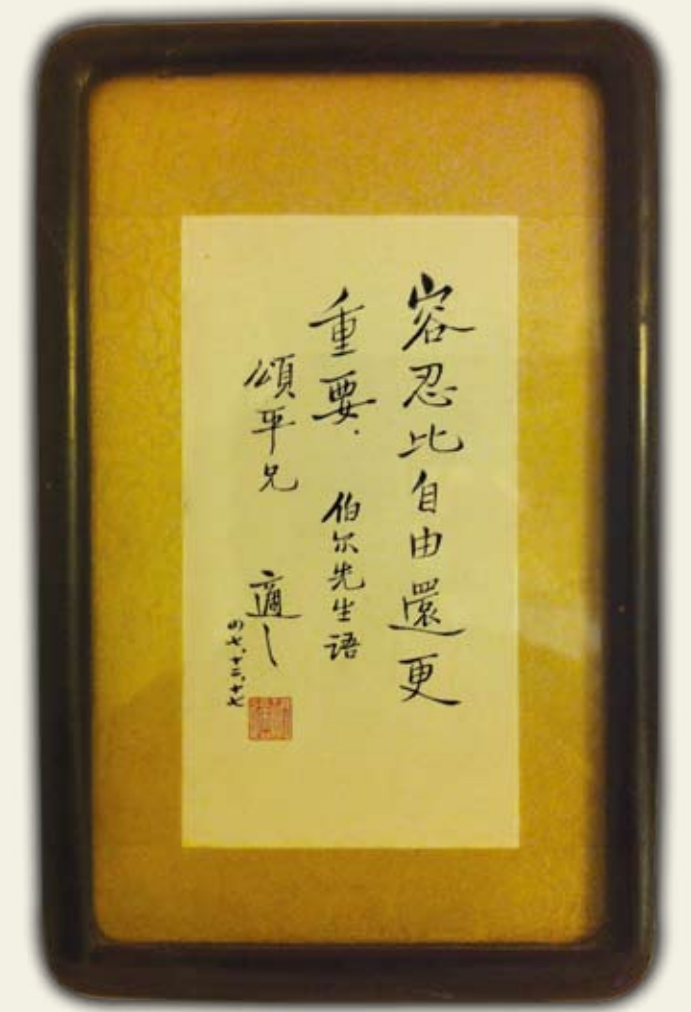 容忍比自由還更
重要. 伯尔先生语
頌平兄
適之
四七、十二、十七